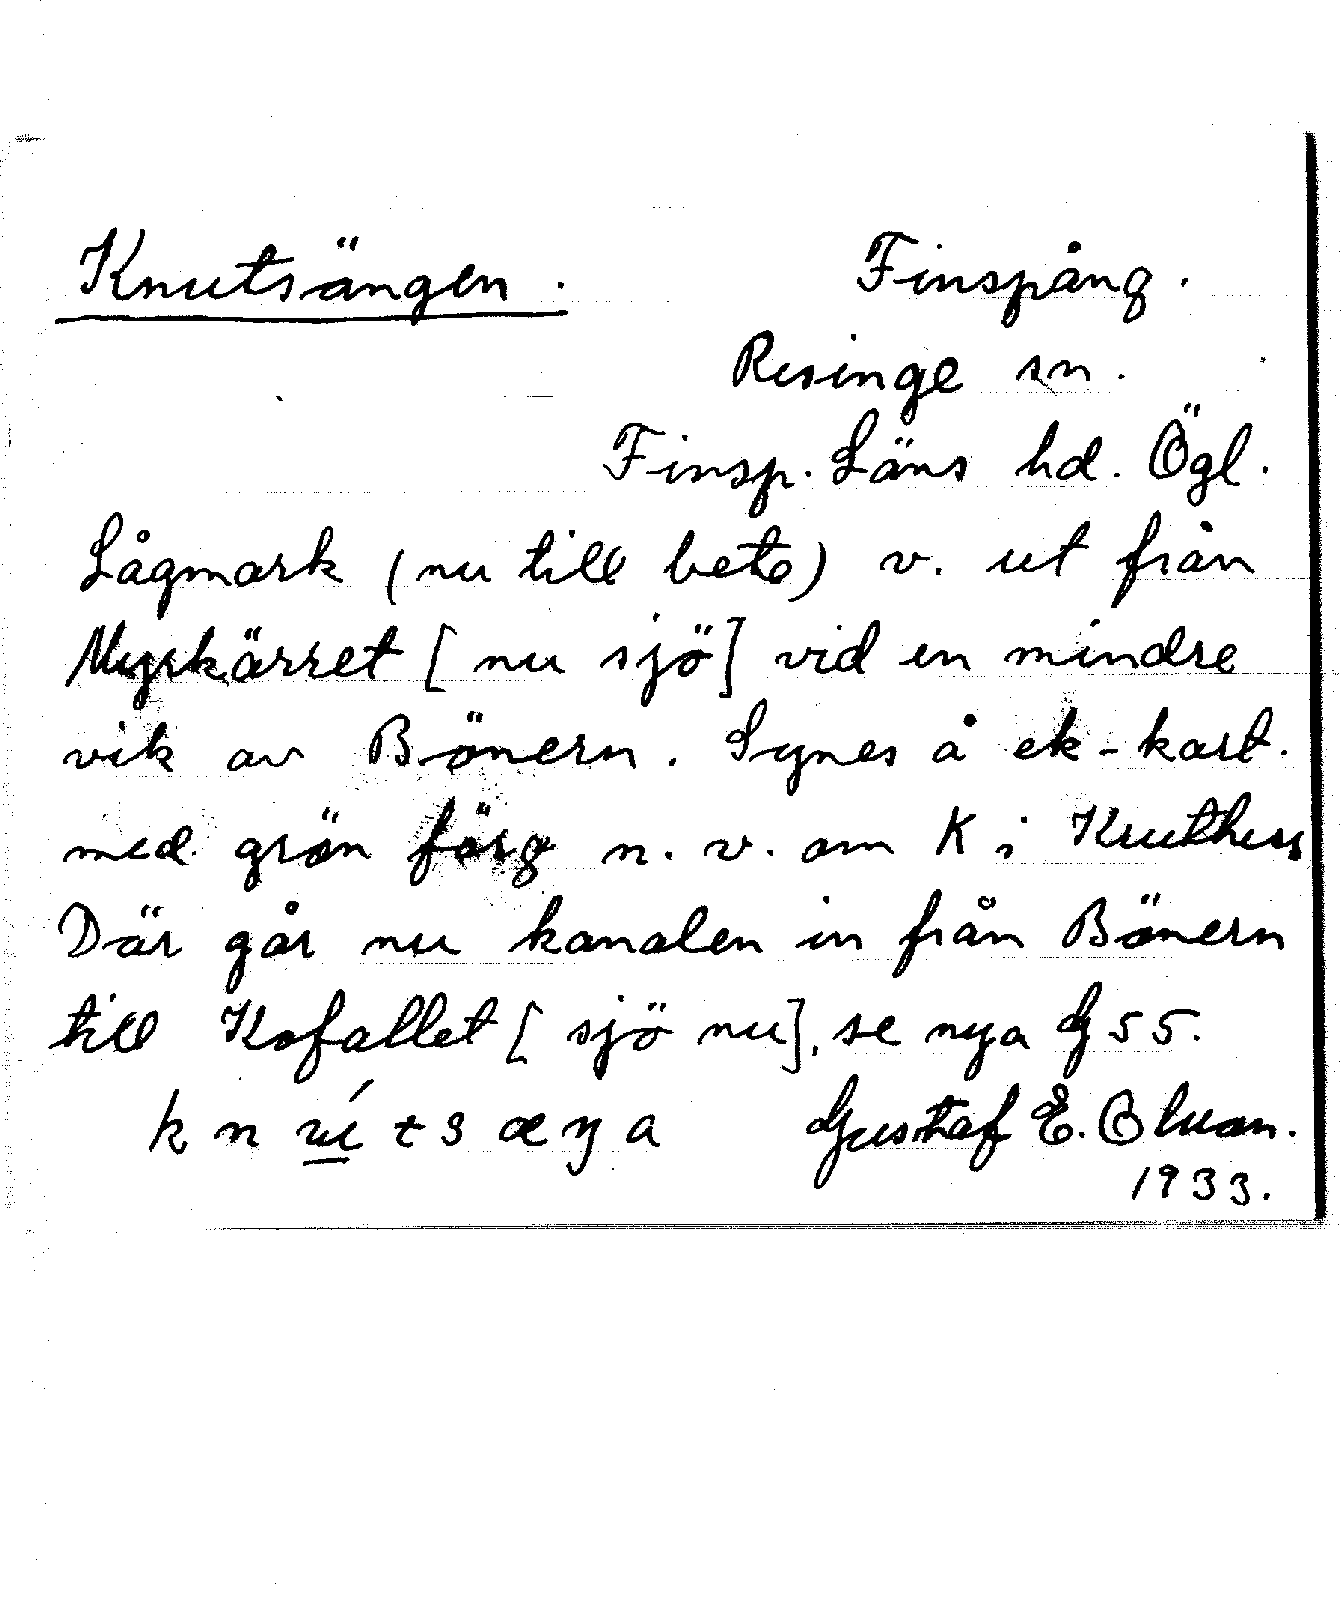 Knutsängen. Finspång.
Risinge sn.
Finsp. Läns hd. Ögl.
Lågmark (nu till bete) v. ut från
Myrkärret [nu sjö] vid en mindre
vik av Bönern. Synes å ek-kart.
med grön färg n. v. om K i Knuthus
Där går nu kanalen in från Bönern
till Kofallet [sjö nu], se nya G 55.
k n ú t s æ ŋ a Gustaf E.
1933.